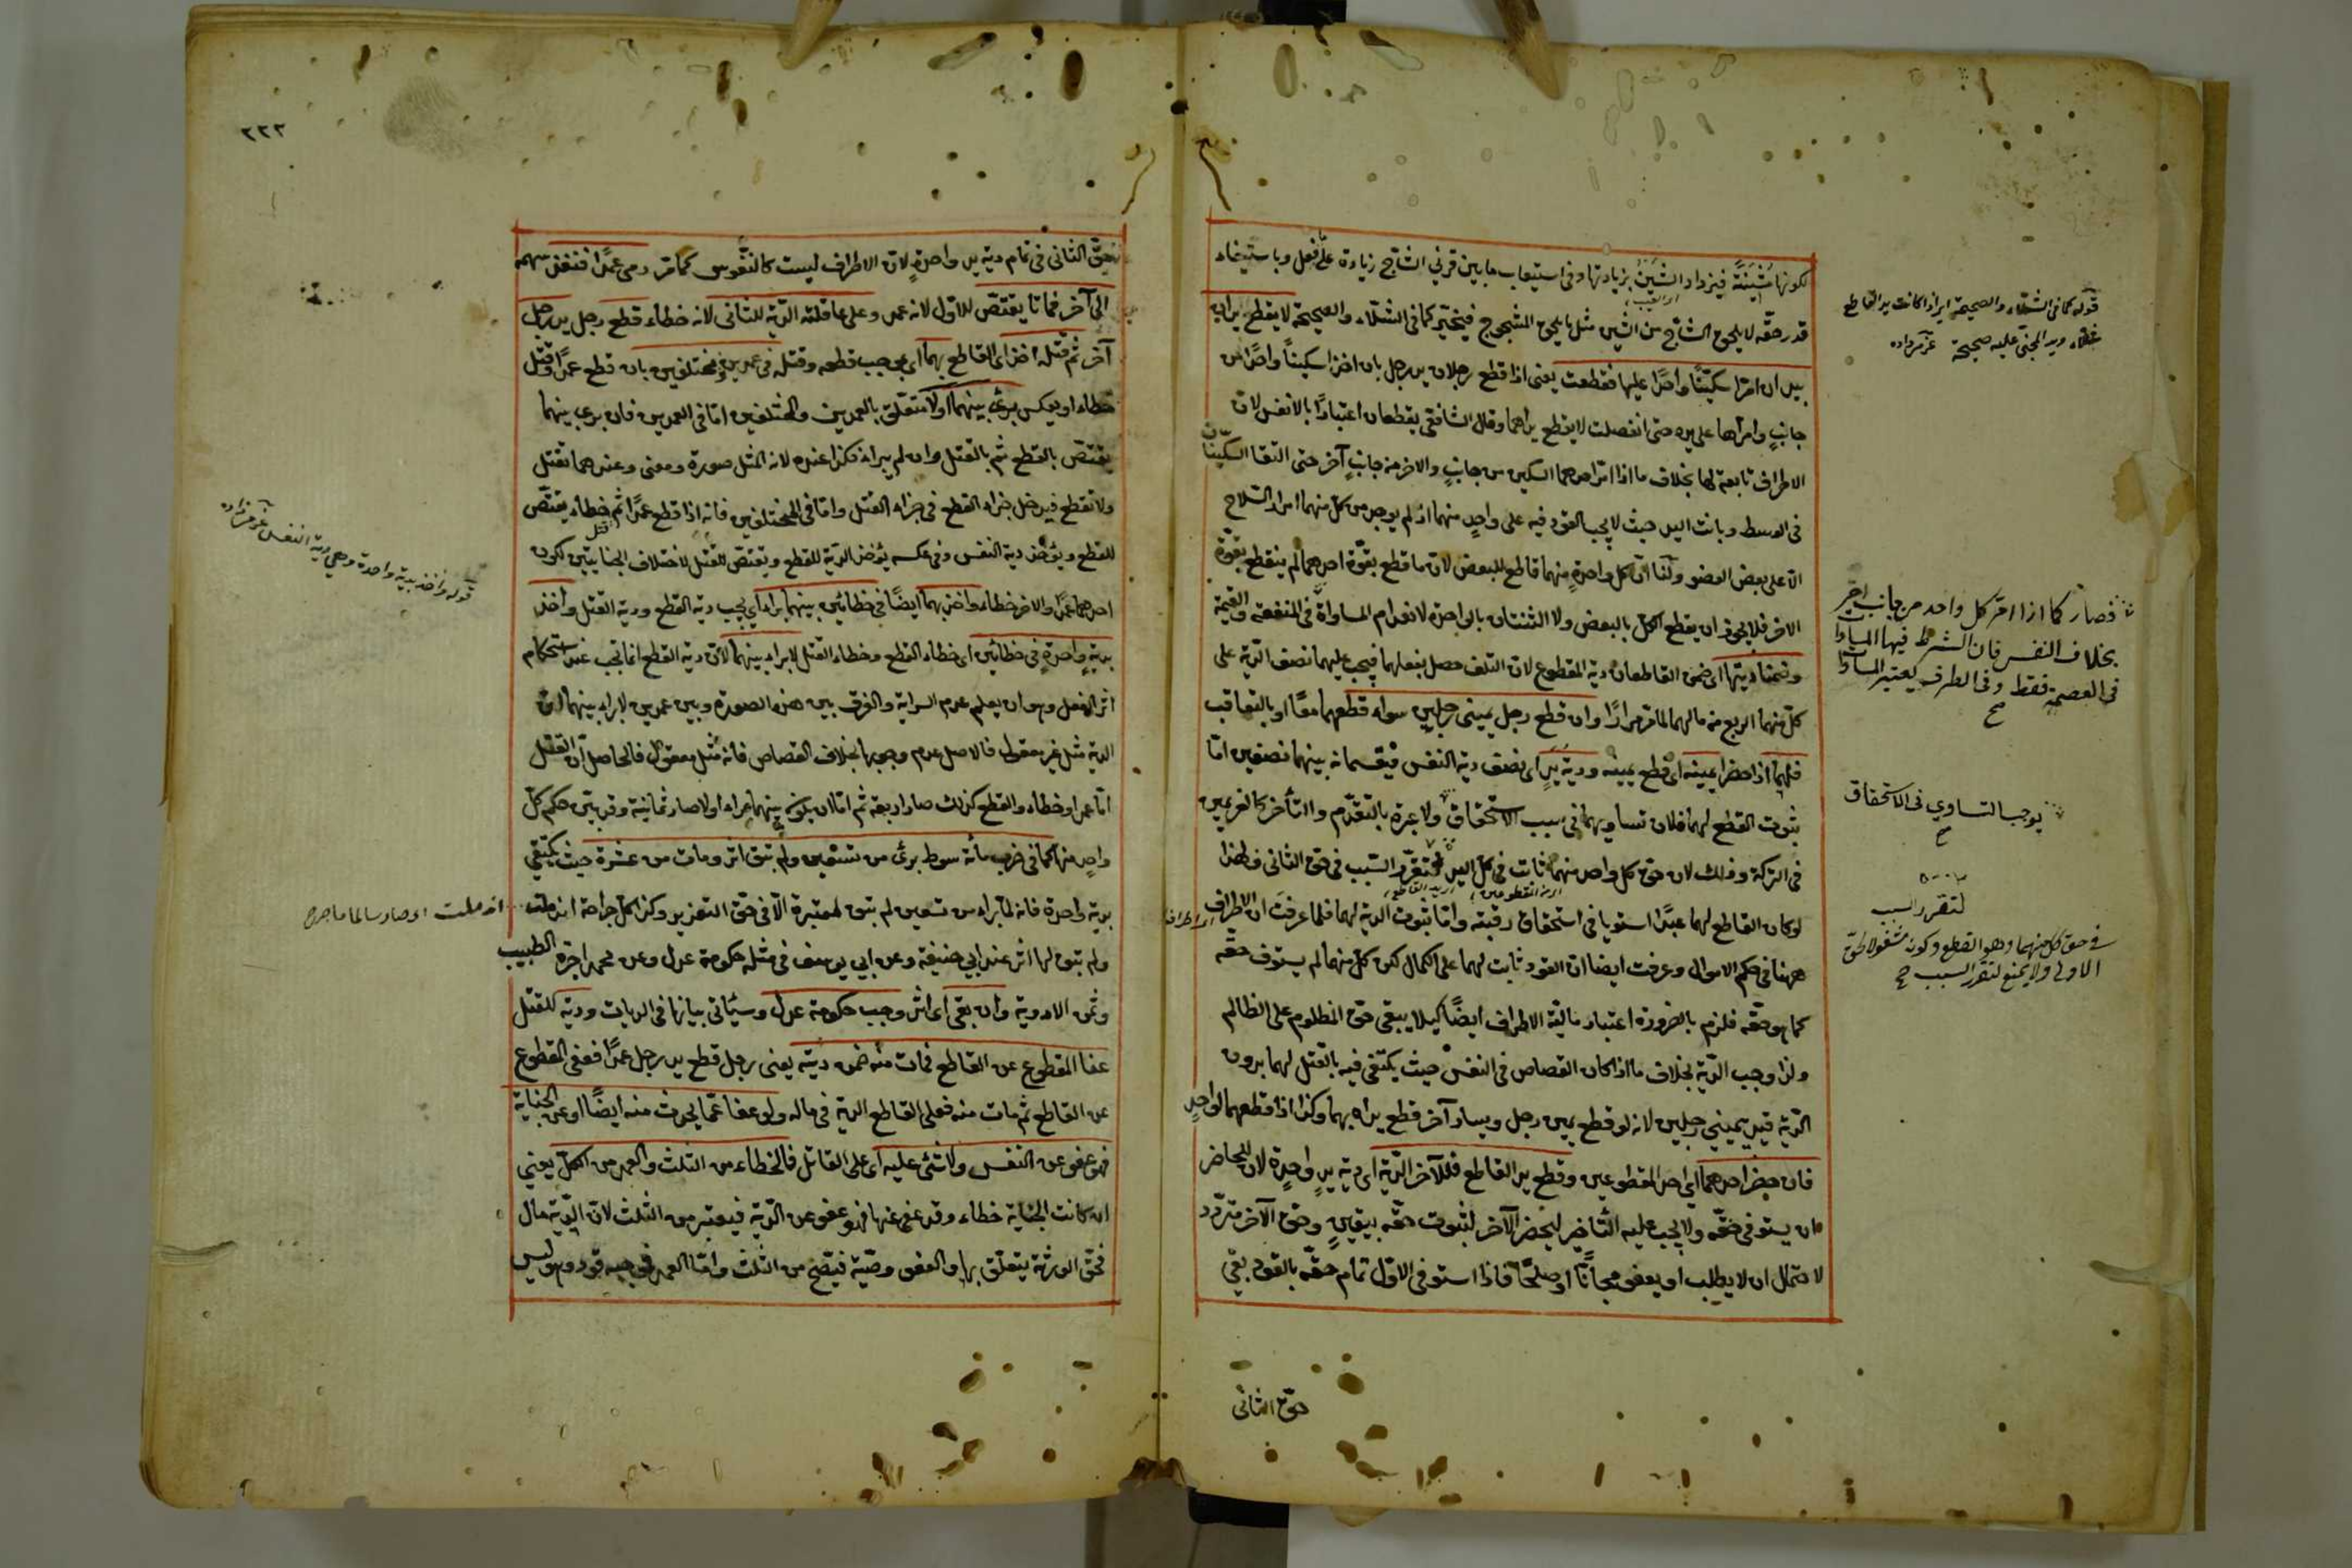 لكونها مشينة فيزداد الشين بزيادتها وفى استيعاب ما بين قرني الشاج زيادة على فعل وباستيفاء
قدر حقه لا يلحق الشاج من الشين مثل ما يلحق المشجوج فيخير كما فى الشلاء والصحيحة لا يقطع يدان
بيد ان امرا سكينا واحدا عليها فقطعت يعنى اذا قطع رجلان يد رجل بان اخذا سكينا واحدا من
جانب وامراها على يده حتى انفصلت لا يقطع يداهما وقال الشافعى يقطعان اعتبارا بالانفس لان
الاطراف تابعة لها بخلاف ما اذا امر احدهما السكين من جانب والاخر من جانب آخر حتى التقا السكينان
فى الوسط وبانت اليد حيث لا يجب القود فيه على واحد منهما اذ لم يوجد من كل منهما امرار السلاح
الا على بعض العضو ولنا ان كل واحدة منهما قاطع للبعض لان ما قطع بقوة احدهما لم ينقطع بقوة
الاخر فلا يجوز ان يقطع الكل بالبعض ولا الثنتان بالواحدة لانعدام المساواة فى المنفعة والقيمة
وضمنا ديتها اى ضمن القاطعان دية المقطوع لان التلف حصل بفعلهما فيجب عليهما نصف الدية على
كل منهما الربع من مالهما لما مر مرارا وان قطع رجل يمينى رجلين سواء قطعهما معا او بالتعاقب
فلهما اذا حضرا يمينه اى قطع يمينه ودية يد اى نصف دية النفس فيقسمانه بينهما نصفين اما
ثبوت القطع لهما فلان تساويهما فى سبب الاستحقاق ولا عبرة بالتقدم والتأخر كالغريمين
فى التركة وذلك لان حق كل واحد منهما ثابت فى كل اليد لتقرر السبب فى حق الثانى ولهذا
لو كان القاطع لهما عبدا استويا فى استحقاق رقبته واما ثبوت الدية لهما فلما عرفت ان الاطراف
ههنا فى حكم الاموال وعرفت ايضا ان القود ثابت لهما على الكمال لكن كل منهما لم يستوف حقه
كما هو حقه فلزم بالضرورة اعتبار مالية الاطراف ايضا كيلا يبقى حق المظلوم على الظالم
ولذا وجب الدية بخلاف ما اذا كان القصاص فى النفس حيث يكتفى فيه بالقتل لهما بدون
الدية قيد بيميني رجلين لانه لو قطع يمين رجل ويسار آخر قطع يداه بهما وكذا اذا قطعهما لواحد
فان حضر احدهما اي احد المقطوعين وقطع يد القاطع فللآخر الدية اى دية يد واحدة لان للحاضر
ان يستوفى حقه ولا يجب عليه التأخير ليحضر الآخر لثبوت حقه بيقين وحق الآخر متردد
لاحتمال ان لا يطلب او يعفو مجانا او صلحا فاذا استوفى الاول تمام حقه بالقود بقي
حق الثانى
قوله كما فى الشلاء والصحيحة اى اذا كانت يد القاطع
شلاء ويد المجنى عليه صحيحة عزمى زاده
فصار كما اذا امر كل واحد من جانب اخر
بخلاف النفس فان الشرط فيها المساواة
فى العصمة فقط وفى الطرف يعتبر المساواة
يوجب التساوي فى الاستحقاق
لتقرر السبب
في حق كل منهما وهو القطع وكونه مشغولا بحق
الاول لا يمنع تقرر السبب
٢٢٢
حق الثانى فى تمام دية يد واحدة لان الاطراف ليست كالنفوس كما مر رمى عمدا فنفذ سهمه
الى آخر فماتا يقتص للاول لانه عمد وعلى عاقلته الدية للثانى لانه خطاء قطع رجل يد رجل
آخر ثم قتله اخذ اى القاطع بهما اى بموجب قطعه وقتله فى عمدين ومختلفين بان قطع عمدا وقتل
خطاء او بعكس برئ بينهما او لا متعلق بالعمدين والمختلفين اما فى العمدين فان برئ بينهما
يقتص بالقطع ثم بالقتل وان لم يبرا فكذا عنده لانه المثل صورة ومعنى وعندهما يقتل
ولا يقطع فيدخل جزاء القطع فى جزاء القتل واما فى المختلفين فانه اذا قطع عمدا ثم قتل خطاء يقتص
للقطع ويؤخذ دية النفس وفى عكسه يؤخذ الدية للقطع ويقتص للقتل لاختلاف الجنايتين لكون
احدهما عمدا والاخر خطاء واخذ بهما ايضا فى خطائين بينهما براء اي يجب دية القطع ودية القتل واخذ
بدية واحدة فى خطائين اى خطاء القطع وخطاء القتل لا براء بينهما لان دية القطع انما تجب عند استحكام
اثر الفعل وهو ان يعلم عدم السراية والفرق بين هذه الصورة وبين عمدين لا براء بينهما ان
الدية مثل غير معقول فالاصل عدم وجوبها بخلاف القصاص فانه مثل معقول فالحاصل ان القتل
اما عمد او خطاء والقطع كذلك صار اربعة ثم اما ان يكون بينهما براء او لا صار ثمانية وقد بين حكم كل
واحد منها كما فى ضرب مائة سوط برئ من تسعين ولم يبق اثر ومات من عشرة حيث يكتفي
بدية واحدة فانه لما برا من تسعين لم يبق معتبرة الا فى حق التعزير وكذا كل جراحة اندملت
ولم يبق لها اثر عند ابي حنيفة وعن ابي يوسف فى مثله حكومة عدل وعن محمد اجرة الطبيب
وثمن الادوية وان بقى اى اثر وجب حكومة عدل وسيأتى بيانها فى الديات ودية للقتل
عفا المقطوع عن القاطع فمات منه ضمن ديته يعنى رجل قطع يد رجل عمدا فعفى المقطوع
عن القاطع ثم مات منه فعلى القاطع الدية فى ماله ولو عفا عما يحدث منه ايضا او عن الجناية
فهو عفو عن النفس ولا شئ عليه اى على القاتل فالخطاء من الثلث والعمد من الكل يعني
ان كانت الجناية خطاء وقد عفى عنها فهو عفو عن الدية فيعتبر من الثلث لان الدية مال
فحق الورثة يتعلق بها والعفو وصية فيصح من الثلث واما العمد فموجبه قود وهو ليس
قوله واخذ بدية واحدة وهي دية النفس عزمى زاده